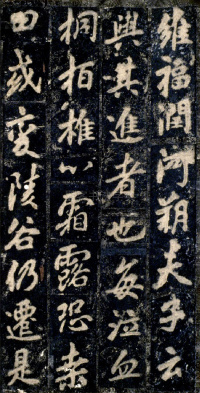 維福潤河朔夫子云
與其進者也每泣血
桐柏摧心霜露恐桑
田或變陵谷仍遷是